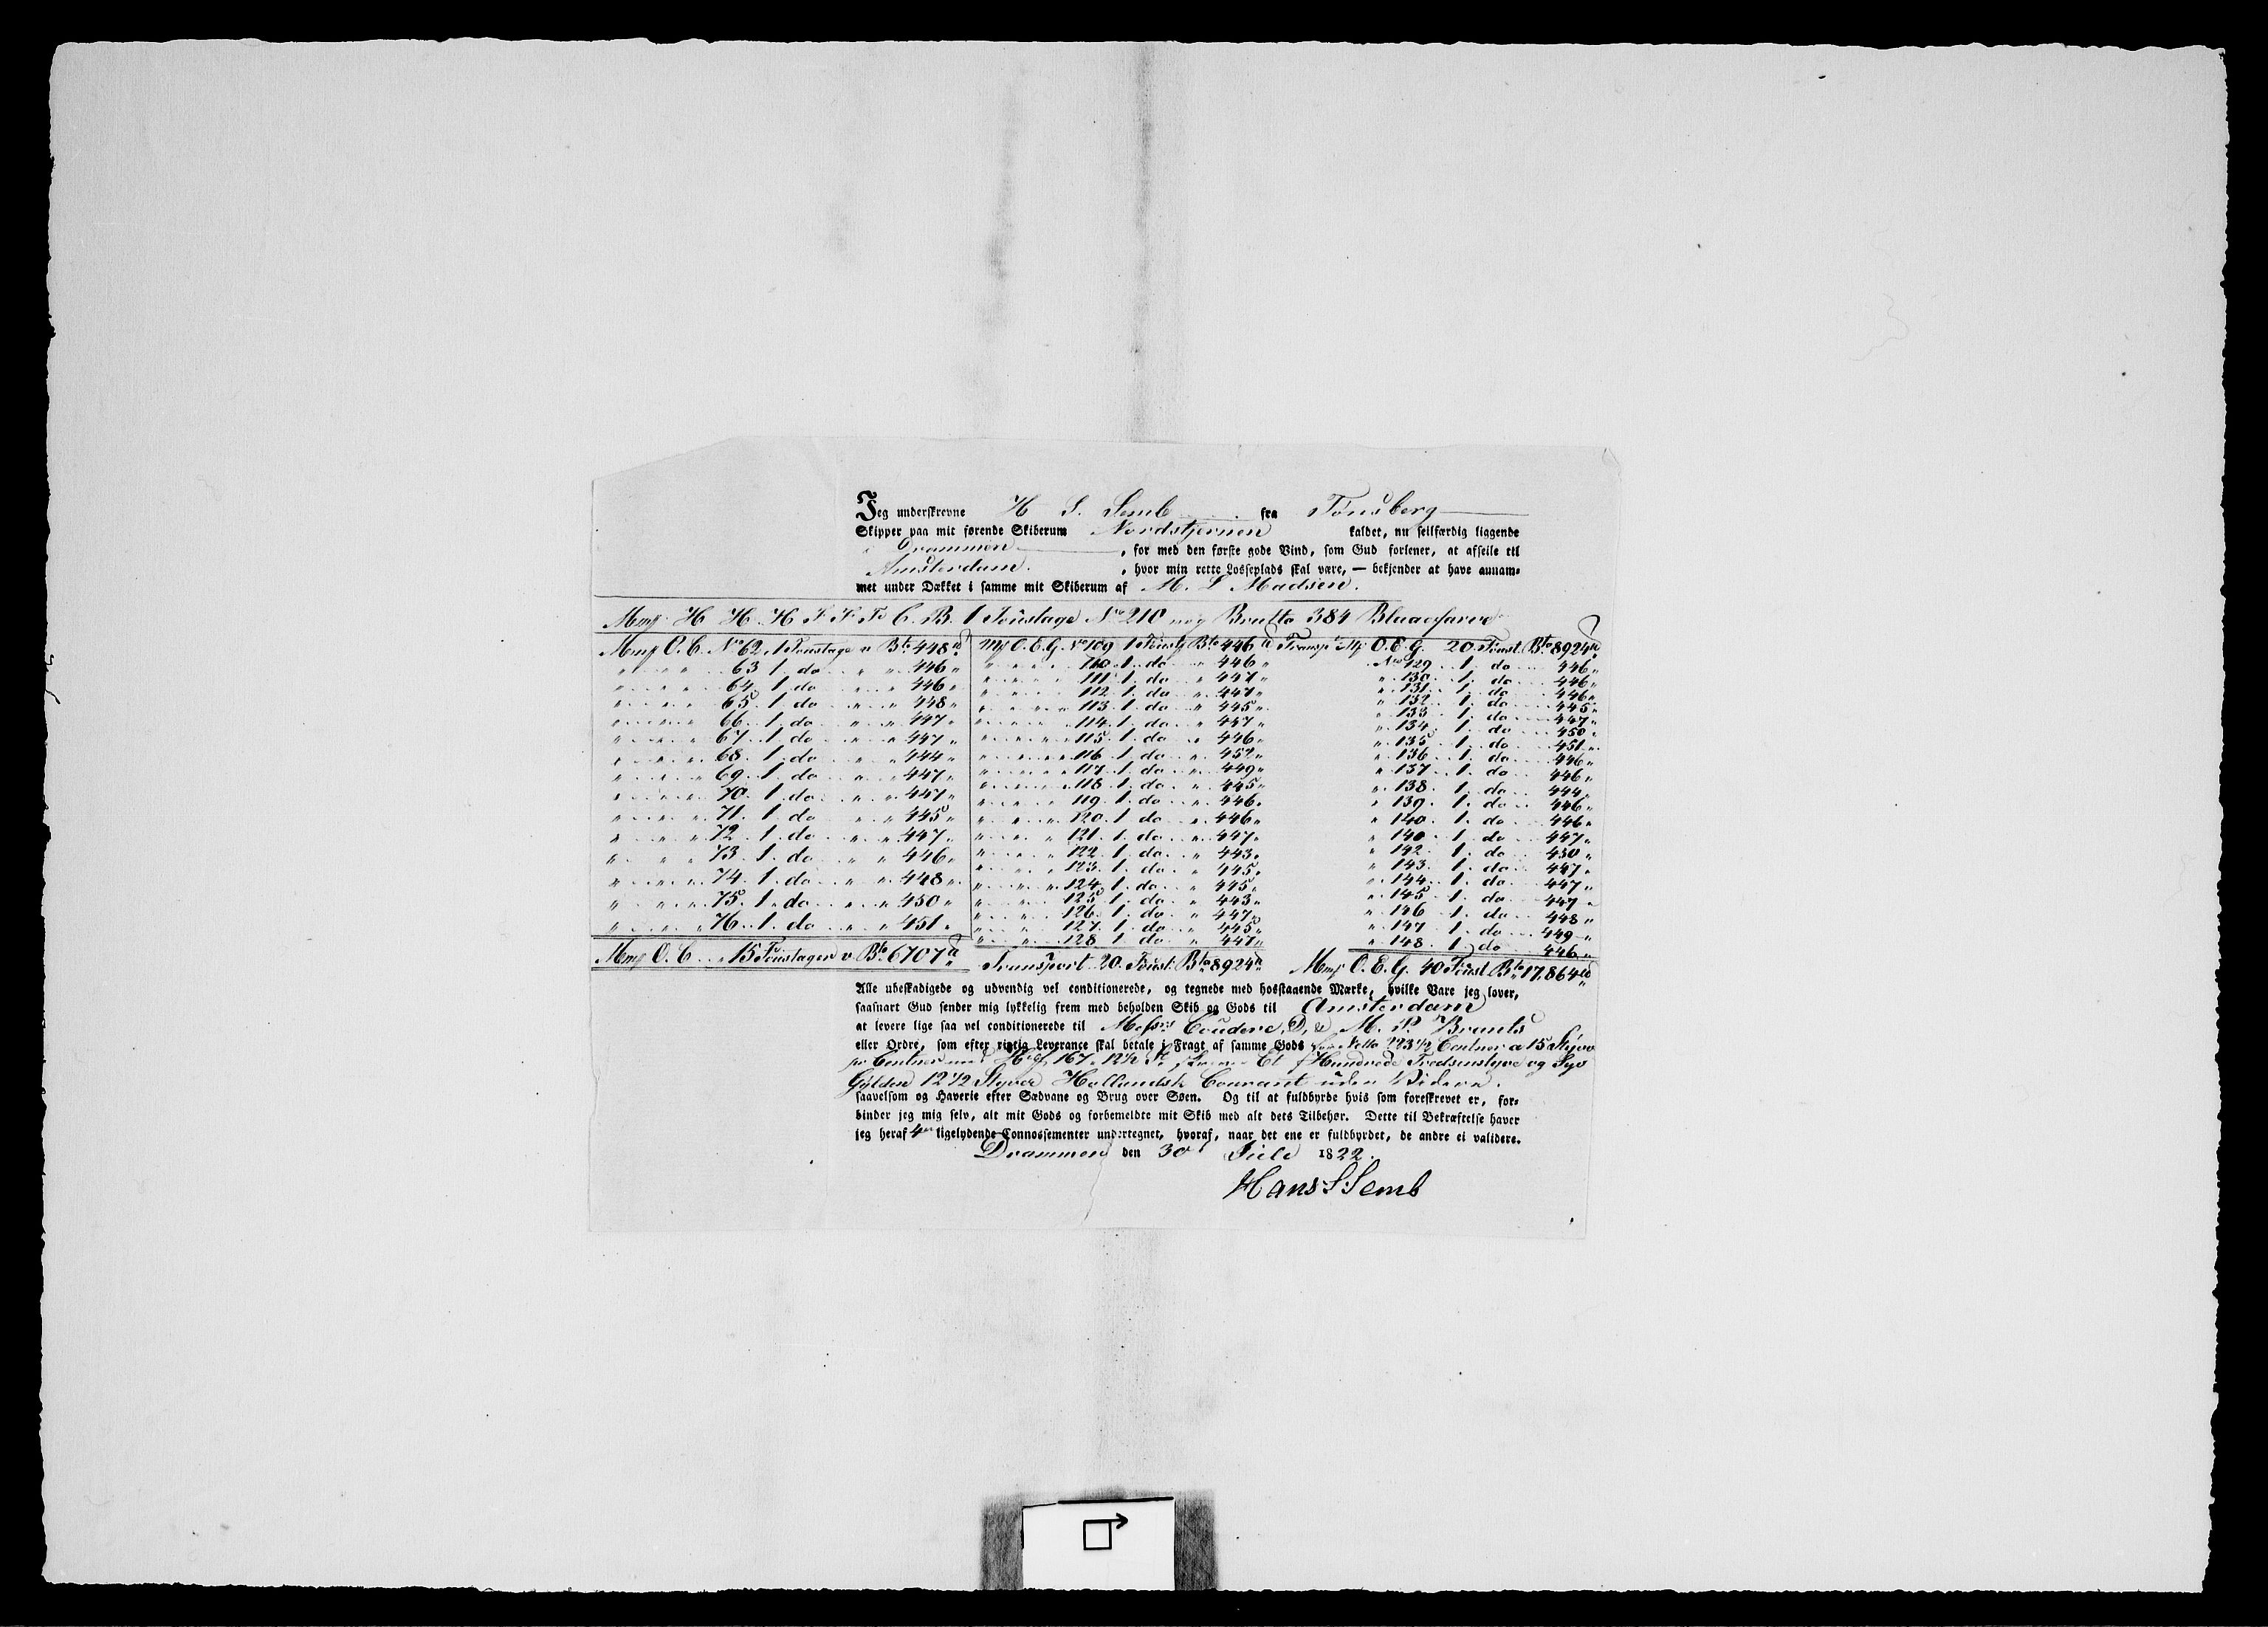 Jeg underskrevne H S. Semb fra Tönsberg
Skipper paa mit førende Skiberum Nordstjernen kaldet, nu seilfærdig liggende
i Drammen, for med den første gode Vind, som Gud forlener, at afseile til
Amsterdam, hvor min rette Losseplads skal være, — bekjender at have annam-
met under Dækket i samme mit Skiberum af M. L Madsen.
H H. H F. F. F. C. B. 1 Foustage No 210 Brutto 384 Blaaefarve
O. C. No 62. 1 Foustage " Bto 448
" 63 1. do " " 446 "
" 64. 1. do " " 446 "
" 65. 1 do " " 448 "
" 66. 1. do " " 447 "
" 67. 1. do " " 447 "
" 68. 1 do " " 444 "
" 69. 1 do " " 447 "
" 70. 1. do " " 447 "
" 71. 1. do " " 445 "
" 72. 1. do " " 447 "
" 73. 1. do " " 446 "
" 74. 1. do " " 448 "
" 75. 1. do " " 450 "
" 76. 1. do " " 451 "
O. C. 15 Foustager " Bto 6707
O. E. G. No 109 1 Foustg Bto 446
" 110 1. do " 446 "
" 111 1. do " 447 "
" 112 1. do " 447 "
" 113. 1. do " 445 "
" 114. 1. do " 447 "
" 115. 1. do " 446 "
" 116 1. do " 452 "
" 117. 1. do " 449 "
" 118. 1. do " 445 "
" 119. 1. do " 446 "
" 120. 1 do " 446 "
" 121. 1. do " 447 "
" 122. 1. do " 443 "
" 123. 1. do " 445 "
" 124. 1. do " 445 "
" 125. 1. do " 443 "
" 126. 1. do " 447 "
" 127. 1. do " 445 "
" 128 1 do " 447 "
Transport 20. Foust. Bto 8924
Transp O. E. G. 20. Foust. Bto 8924
No 129 1. do 446 "
" 130. 1. do 446 "
" 131. 1. do 446 "
" 132. 1. do 445 "
" 133 1. do 447 "
" 134. 1. do 450 "
" 135. 1. do 451 "
" 136 1. do 446 "
" 137. 1. do 446 "
" 138. 1. do 444 "
" 139. 1. do 446 "
" 140. 1. do 446 "
" 140. 1. do 447 "
" 142. 1. do 450 "
" 143. 1. do 447 "
" 144. 1. do 447 "
" 145. 1. do 447 "
" 146 1. do 448 "
" 147 1. do 449 "
" 148. 1. do 446 "
O. E. G. 40 Foust. Bto 17,864
Alle ubeskadigede og udvendig vel conditionerede, og tegnede med hosstaaende Mærke, hvilke Vare jeg lover,
saasnart Gud sender mig lykkelig frem med beholden Skib og Gods til Amsterdam
at levere lige saa vel conditionerede til Messrs Couderc, D. & M. P. Brants
eller Ordre, som efter rigtig Leverance skal betale i Fragt af samme Gods Netto 223 1/2 Centner a 15 Styver
pr Centner med 167. 12 1/2 St Et Hundrede Tredsenstyve og Syv
Gylden 12 1/2 Styver Hollandsk Courant uden Videre.
saavelsom og Haverie efter Sædvane og Brug over Søen. Og til at fuldbyrde hvis som foreskrevet er, for-
binder jeg mig selv, alt mit Gods og forbemeldte mit Skib med alt dets Tilbehør. Dette til Bekræftelse haver
jeg heraf 4 ligelydende Connossementer undertegnet, hvoraf, naar det ene er fuldbyrdet, de andre ei validere.
Drammen den 30 1822.
Hans S Semb